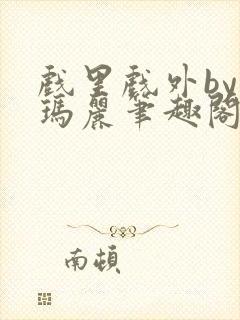 戲里戲外by
瑪麗筆趣閣
南頓